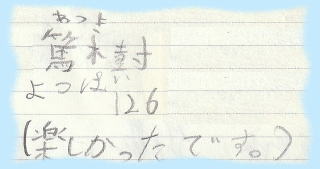 あつき
篤樹
よっぱい
126
(楽しかったです。)